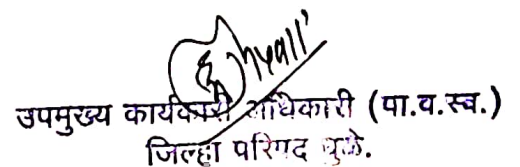 उपमुख्य कार्यकारी अधिकारी (पा.व.स्व.)
जिल्हा परिषद धुळे.